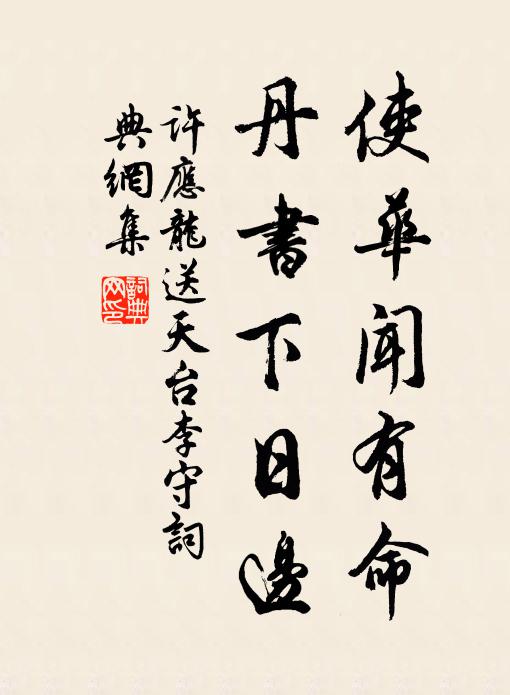 使華聞有命
丹書下日邊
許應龍送天台李守詞
典網集
詞典網印